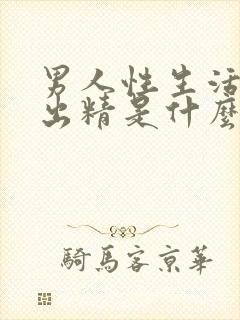 男人性生活
出精是什麼
騎馬客京華